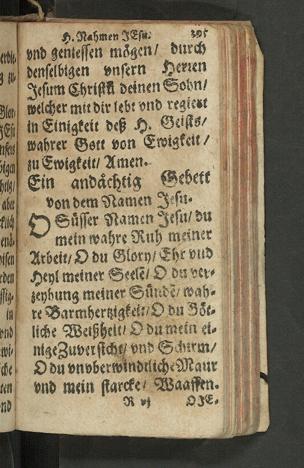 H. Nahmen JEsu. 395
vnd geniessen mögen/ durch
denselbigen vnsern Herren
Jesum Christū deinen Sohn/
welcher mit dir lebt vnd regiert
in Einigkeit deß H. Geists/
wahrer Gott von Ewigkeit/
zu Ewigkeit/ Amen.
Ein andächtig Gebett
von dem Namen Jesu.
O Süsser Namen Jesu/ du
mein wahre Ruh meiner
Arbeit/ O du Glory/ Ehr vnd
Heyl meiner Seele/ O du ver-
zeyhung meiner Sünde/ wah-
re Barmhertzigkeit/ O du Göt-
liche Weißheit/ O du mein ei-
nige Zuversicht/ vnd Schirm/
O du vnvberwindtliche Maur
vnd mein starcke/ Waaffen.
R vj OJE.